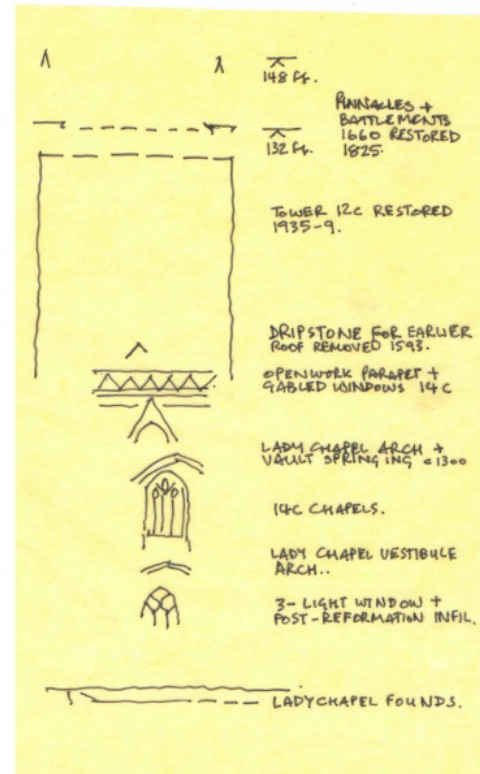 148 Ft.
PINNACLES +
BATTLEMENTS
1660 RESTORED
1825.
132 Ft.
TOWER 12C RESTORED
1935-9.
DRIPSTONE FOR EARLIER
ROOF REMOVED 1593.
OPENWORK PARAPET +
GABLED WINDOWS 14C
LADY CHAPEL ARCH +
VAULT SPRINGING c1300
14C CHAPELS.
LADY CHAPEL VESTIBULE
ARCH..
3-LIGHT WINDOW +
POST-REFORMATION INFIL.
LADYCHAPEL FOUNDS.